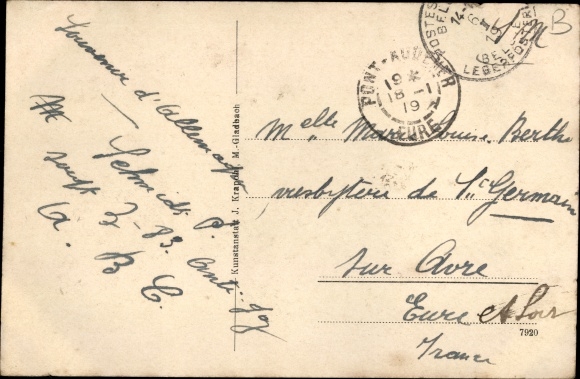 Souvenir d'Allemagne
Schmidt P.
3-83.
A. B. C.
Kunstanstalt J. Krapohl, M.-Gladbach
PONT-AUDEMER
19 *
18 -1
19
EURE
POSTES
14-
19
M B
Melle Marie Louise Berthe
presbytère de St Germain
sur Avre
Eure et Loir
7920
France